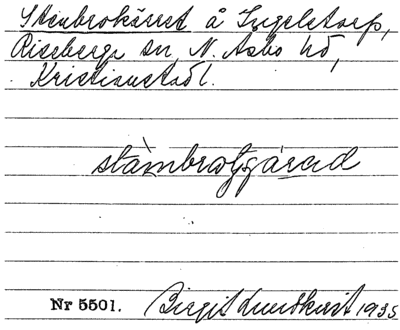 Stenbrokärret å Ingelstorp,
Riseberga sn, N. Åsbo hd,
Kristianstad l.
Nr 5501. Birgit Lundkvist 1935